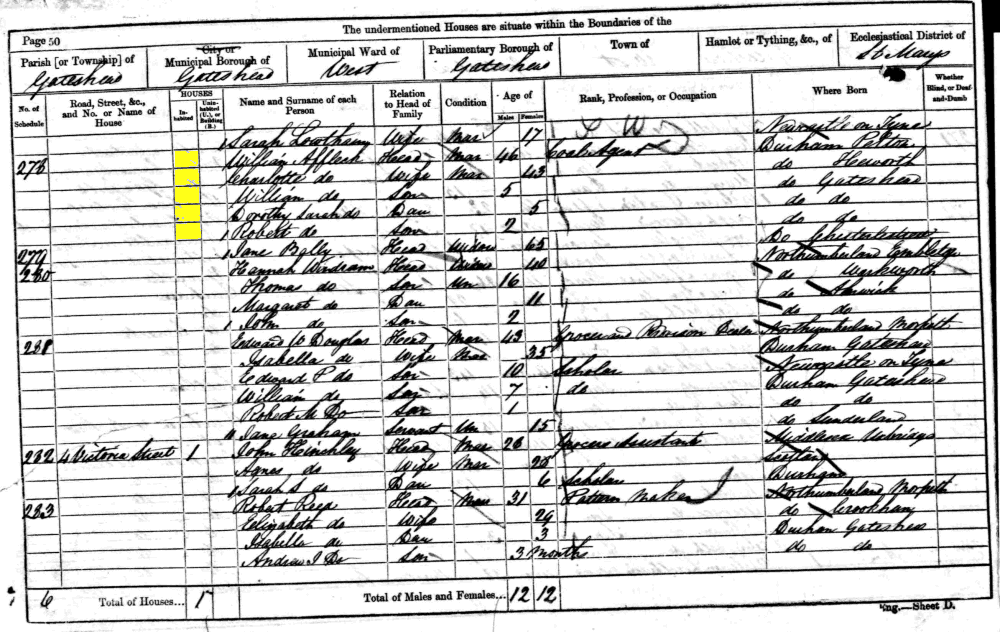 The undermentioned Houses are situate within the Boundaries of the
Page 50
Parish [or Township] of
Gateshead
City or
Municipal Borough of
Gateshead
Municipal Ward of
West
Parliamentary Borough of
Gateshead
Town of
Hamlet or Tything, &c., of
Ecclesiastical District of
St Marys
No. of Schedule
Road, Street, &c., and No. or Name of House
HOUSES
Inhabited
Uninhabited (U.), or Building (B.)
Name and Surname of each Person
Relation to Head of Family
Condition
Age of
Males
Females
Rank, Profession, or Occupation
Where Born
Whether Blind, or Deaf-and-Dumb
Sarah Wife Mar 17 Newcastle on Tyne
William Affleck Head Mar 46 Coal Agent Durham Pelton
Charlotte do Wife Mar 43 do Heworth
William do Son 5 do Gateshead
Dorothy Sarah do Dau 5 do do
Robert do Son 2 do do
Jane Head 65 Do
280 Hannah Head 40 Northumberland
Thomas do Son Un 16 do Warkworth
Margaret do Dau 11 do Alnwick
1 John do Son 2 do do
281 Edward W Douglas Head Mar 43 Grocer and Provision Dealer Northumberland Morpeth
Isabella do Wife Mar 35 Durham Gateshead
Edward P do Son 10 Scholar Newcastle on Tyne
William do Son 7 do Durham Gateshead
Robert M Do Son 1 do do
Jane Graham Servant Un 15 do Sunderland
282 4 Victoria Street 1 John Hinchley Head Mar 26 Grocers Assistant Middlesex Uxbridge
Agnes do Wife Mar 28 Scotland
Sarah do Dau 6 Scholar Durham
283 Robert Head Mar 31 Pattern Maker Northumberland Morpeth
Elizabeth do Wife 29 do Crookham
Isabella do Dau 3 Durham Gateshead
Andrew J Do Son 3 months do do
6 Total of Houses... 1
Total of Males and Females... 12 12
Eng.—Sheet D.